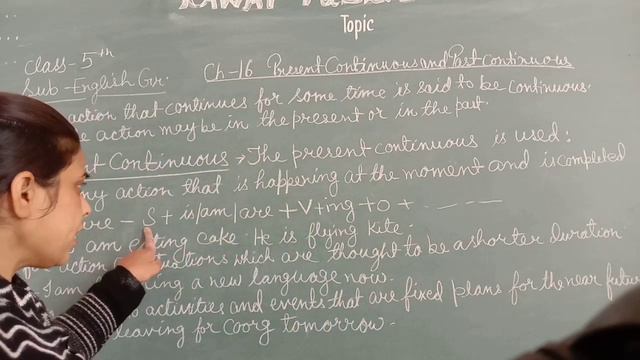 Topic
Class - 5th
Sub - English Gr.
Ch-16 Present Continuous and Past continuous
action that continues for some time is said to be continuous.
action may be in the present or in the past.
Continuous → The present continuous is used :
action that is happening at the moment and is completed
- S + is/am/are + V + ing + o + - - - -
am eating cake. He is flying kite.
which are thought to be a shorter duration
I am a new language now.
activities and events that are fixed plans for the near
leaving for coorg tomorrow.